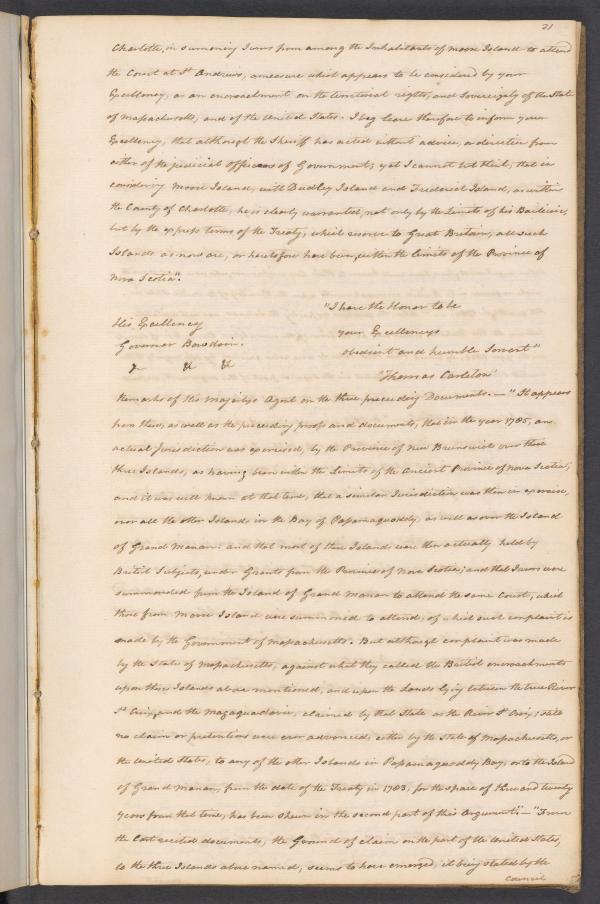 21
Charlotte, in summoning Jurors from among the Inhabitants of Moose Island to attend
the Court at St Andrews, a measure which appears to be considered by your
Excellency, as an encroachment on the territorial rights, and Sovereignty of the State
of Massachusetts, and of the United States. I beg leave therefore to inform your
Excellency, that although the Sheriff has acted without advice, or direction from
either of the judicial Officers of Government; yet I cannot but think, that in
considering Moose Island, with Dudley Island and Frederick Island, as within
the County of Charlotte, he is clearly warranted, not only by the Limits of his Bailiwick,
but by the express terms of the Treaty, which reserve to Great Britain, all such
Islands as now are, or heretofore have been, within the limits of the Province of
Nova Scotia".
"I have the Honor to be
His Excellency
your Excellencys
Governor Bowdoin.
obedient and humble Servant"
&c &c &c
"Thomas Carleton"
Remarks of His Majestys Agent on the three preceding Documents.— "It appears
from these, as well as the preceding proofs and documents, that in the year 1785, an
actual Jurisdiction was exercised, by the Province of New Brunswick over these
three Islands, as having been within the Limits of the Ancient Province of Nova Scotia;
and it was well known at that time, that a similar Jurisdiction was then in exercise,
over all the other Islands in the Bay of Passamaquoddy, as well as over the Island
of Grand Manan: and that most of these Islands were then actually held by
British Subjects, under Grants from the Province of Nova Scotia; and that Jurors were
summoned from the Island of Grand Manan to attend the same Court, which
those from Moose Island were summoned to attend, of which such complaint is
made by the Government of Massachusetts. But although complaint was made
by the State of Massachusetts, against what they called the British encroachments
upon these Islands above mentioned, and upon the Lands lying between the true River
St Croix, and the Magaguadavic, claimed by that State as the River St Croix; still
no claim or pretentions were ever advanced, either by the State of Massachusetts, or
the United States, to any of the other Islands in Passamaquoddy Bay, or to the Island
of Grand Manan, from the date of the Treaty in 1783, for the space of three and twenty
years from that time, has been shewn in the second part of this Argument"— "From
the last recited documents, the Ground of claim on the part of the United States,
to the three Islands above named, seems to have emerged, it being stated by the
Council